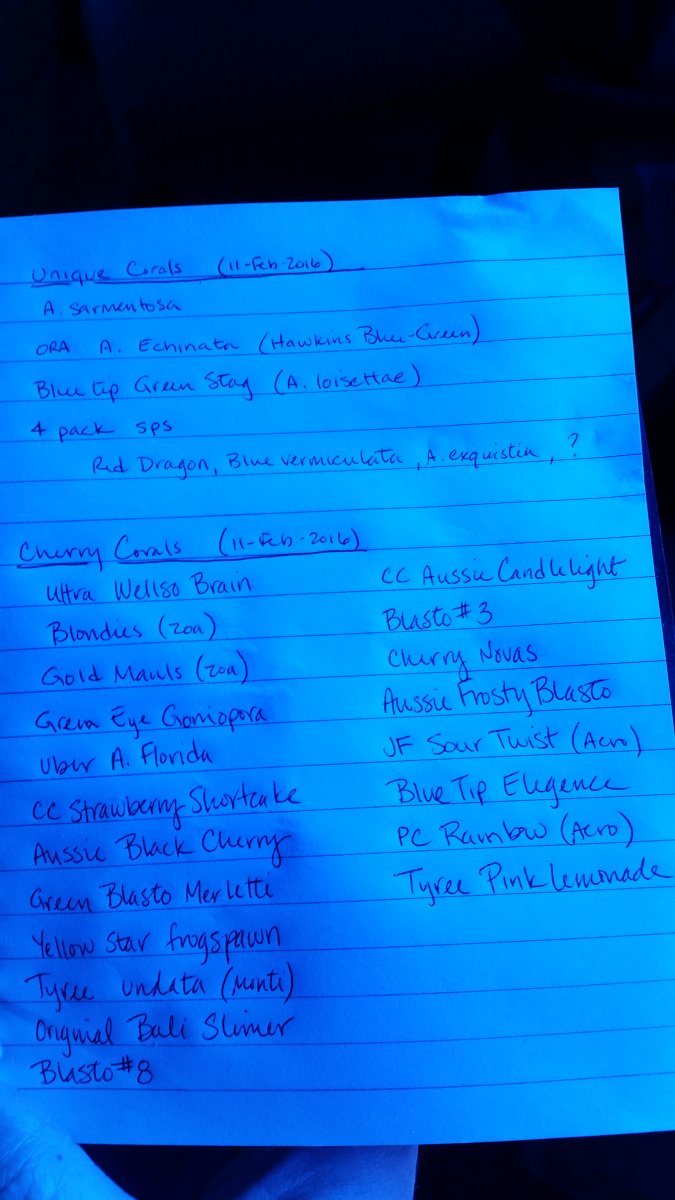 Unique Corals (11-Feb-2016)
A. sarmentosa
ORA A. Echinata (Hawkins Blue-Green)
Blue tip Green Stag (A. loisettae)
4 pack sps
Red Dragon, Blue vermiculata, A. exquistia, ?
Cherry Corals (11-Feb-2016)
Ultra Wellso Brain
Blondies (zoa)
Gold Mauls (zoa)
Green Eye Goniopora
Uber A. Florida
CC Strawberry Shortcake
Aussie Black Cherry
Green Blasto Merletti
Yellow Star frogspawn
Tyree undata (Monti)
Orignial Bali Slimer
Blasto #8
CC Aussie Candlelight
Blasto #3
Cherry Novas
Aussie Frosty Blasto
JF Sour Twist (Acro)
Blue Tip Elegence
PC Rainbow (Acro)
Tyree Pink Lemonade